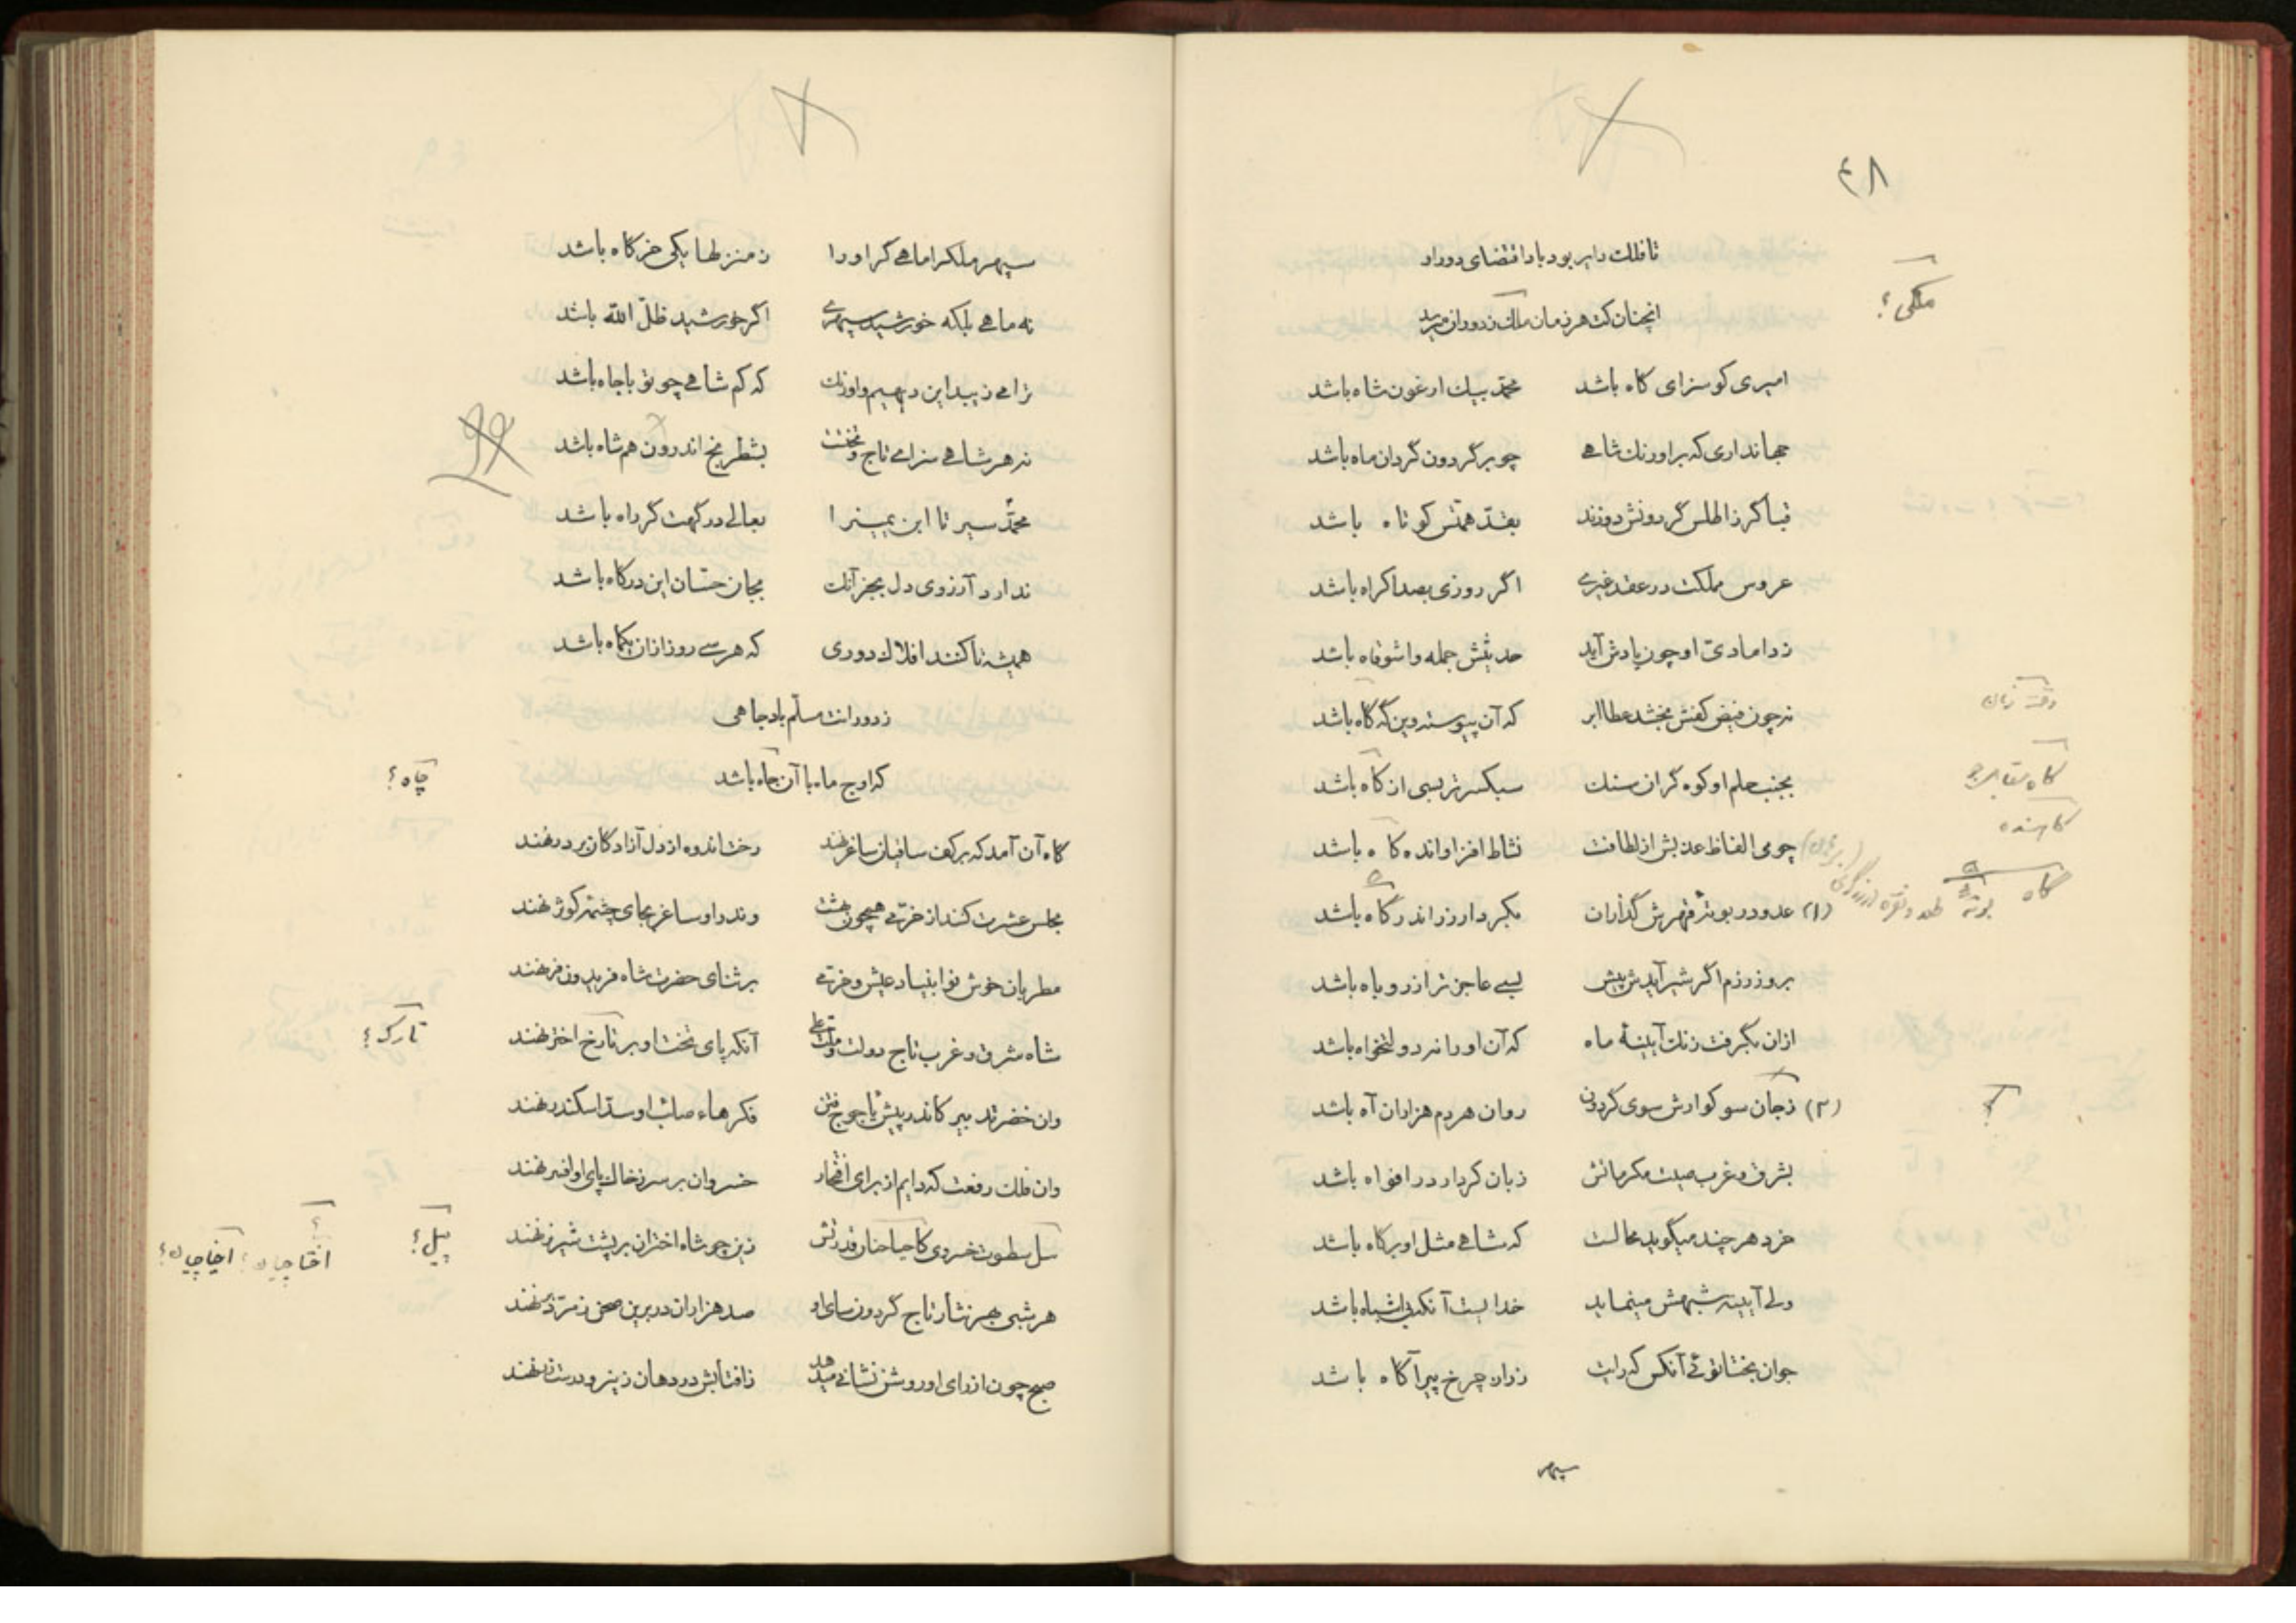 ۴۸
تا فلک دایر بود بادا اقتضای دور او
آنچنان کت هر زمان ملک ز دوران میرسد
ملکی؟
امیری کو سزای گاه باشد محمد بیک ارغون شاه باشد
جهانداری که بر اورنک شاهی چو بر گردون گردان ماه باشد
قبا گر ز اطلس گردونش دوزند بقد همتش کوتاه باشد
عروس مملکت در عقد غیری اگر روزی بصد اکراه باشد
ز دامادی او چون یادش آید حدیثش جمله وا شوقاه باشد
نه چون فیض کفش بخشد عطا ابر که آن پیوسته وین گه گاه باشد
وقت زمان
بجنب حلم او کوه گران سنک سبکسرتر بسی از کاه باشد
کاه مقابل جو
چو می الفاظ عذبش از لطافت نشاط افزا و انده کاه باشد
کاهنده
(۱) عدو در بوتهٔ قهرش گدازان بکردار زر اندر گاه باشد
گاه بوته
بروز رزم اگر شیر آیدش پیش بسی عاجزتر از روباه باشد
ازان بگرفت زنک آیینهٔ ماه که آن او را نه دولتخواه باشد
(۲) ز جان سوکوارش سوی گردون روان هر دم هزاران آه باشد
؟
بشرق و غرب صیت مکرماتش زبان کردار در افواه باشد
خرد هر چند میگوید محالست که شاهی مثل او بر گاه باشد
ولی آیینه شبهش مینماید خدا است آنکه بی اشباه باشد
جوان بختا توئی آنکس که رایت ز راز چرخ پیر آگاه باشد
سپهر
سپهر ملک را ماهی گر او را ز منزلها یکی خرگاه باشد
نه ماهی بلکه خورشید سپهری اگر خورشید ظل الله باشد
ترا می زیبد این دیهیم و اورنک که کم شاهی چو تو با جاه باشد
نه هر شاهی سزای تاج و تختست بشطرنج اندرون هم شاه باشد
محمد سیرتا ابن یمین را بعالی درگهت گر راه باشد
ندارد آرزوی دل بجز آنک بجان حسان این درگاه باشد
همیشه تا کنند افلاک دوری که هر سی روز ازان یکماه باشد
ز دورانت مسلم باد جاهی
که اوج ماه با آن جاه باشد
چاه؟
گاه آن آمد که بر کف ساقیان ساغر نهند رخت اندوه از دل آزادگان بر در نهند
مجلس عشرت کنند از خرمی همچون بهشت وندر او ساغر بجای چشمهٔ کوثر نهند
مطربان خوش نوا بنیاد عیش و خرمی بر ثنای حضرت شاه فریدون فر نهند
شاه شرق و غرب تاج دولت و ملت علی آنکه پای تخت او بر تارخ اختر نهند
تارک؟
وان خضر تدبیر کاندر پیش یاجوج فتن فکرهاء صائب او سد اسکندر نهند
وان فلک رفعت که دایم از برای افتخار خسروان بر سر ز خاک پای او افسر نهند
سل سطوت خسروی کاحیاحنار قدرتش زین چو شاه اختران بر پشت شیر نر نهند
پیل؟ اختاچیان؟ آخیاچیان؟
هر شبی بهر نثار تاج گردون سای او صد هزاران در برین صحن زمرد بر نهند
صبح چون از رای او روشن نشانی میدهد زافتابش در دهان زینرو درست زر نهند